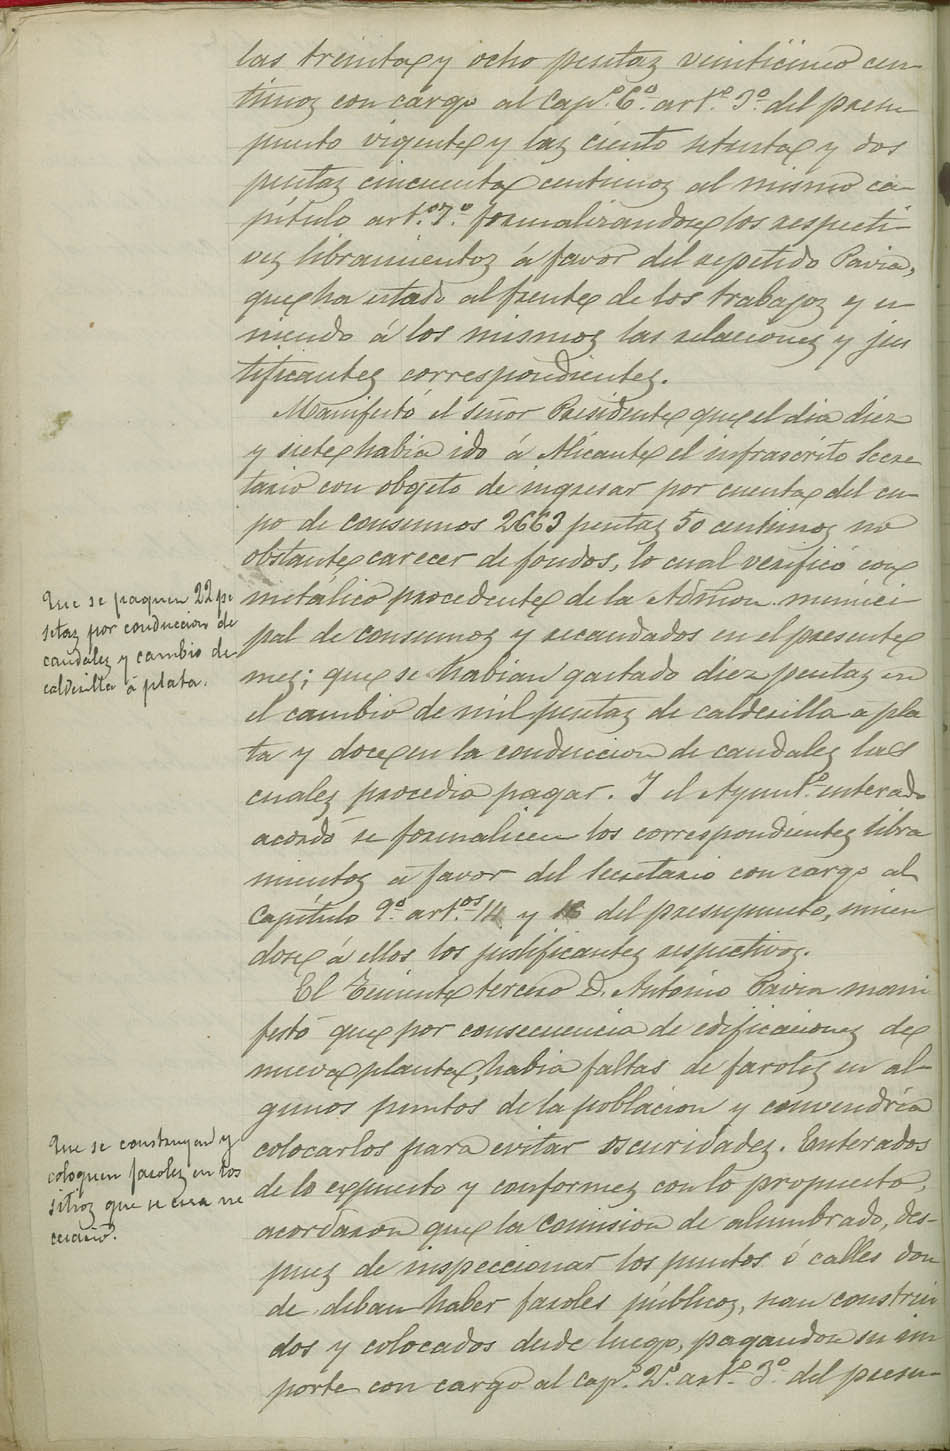 las treinta y ocho pesetas veinticinco cen-
timos con cargo al Cap.º 6.º art.º 3.º del presu
puesto vigente y las ciento setenta y dos
pesetas cincuenta centimos al mismo ca-
pítulo art.º 7.º formalizandose los respecti-
vos libramientos á favor del repetido Pavia,
que ha estado al frente de los trabajos y u-
niendo á los mismos las relaciones y jus
tificantes correspondientes.
Manifestó el señor Presidente que el dia diez
y siete habia ido á Alicante el infrascrito Secre
tario con objeto de ingresar por cuenta del cu-
po de consumos 2663 pesetas 50 centimos no
obstante carecer de fondos, lo cual verificó con
metálico procedente de la Admon. munici
pal de consumos y recaudados en el presente
mes; que se habian gastado diez pesetas en
el cambio de mil pesetas de calderilla a pla
ta y doce en la conduccion de caudales las
cuales procedia pagar. Y el Ayunt.º enterado
acordó se formalicen los correspondientes libra
mientos a favor del Secretario con cargo al
Capítulo 9.º art.os 14 y 16 del presupuesto, unien
dose á ellos los justificantes respectivos.
Que se paguen 22 pe
setas por conduccion de
caudales y cambio de
calderilla á plata.
El Teniente tercero D. António Pavia mani
festó que por consecuencia de edificaciones de
nueva planta, habia faltas de faroles en al-
gunos puntos de la poblacion y convendría
colocarlos para evitar oscuridades. Enterados
de lo expuesto y conformes con lo propuesto,
acordaron que la Comision de alumbrado, des-
pues de inspeccionar los puntos ó calles don
de deban haber faroles públicos, sean construi
dos y colocados desde luego, pagandose su im
porte con cargo al Cap.º 2.º art.º 3.º del presu-
Que se construyan y
coloquen faroles en los
sitios que se crea ne
cesario.